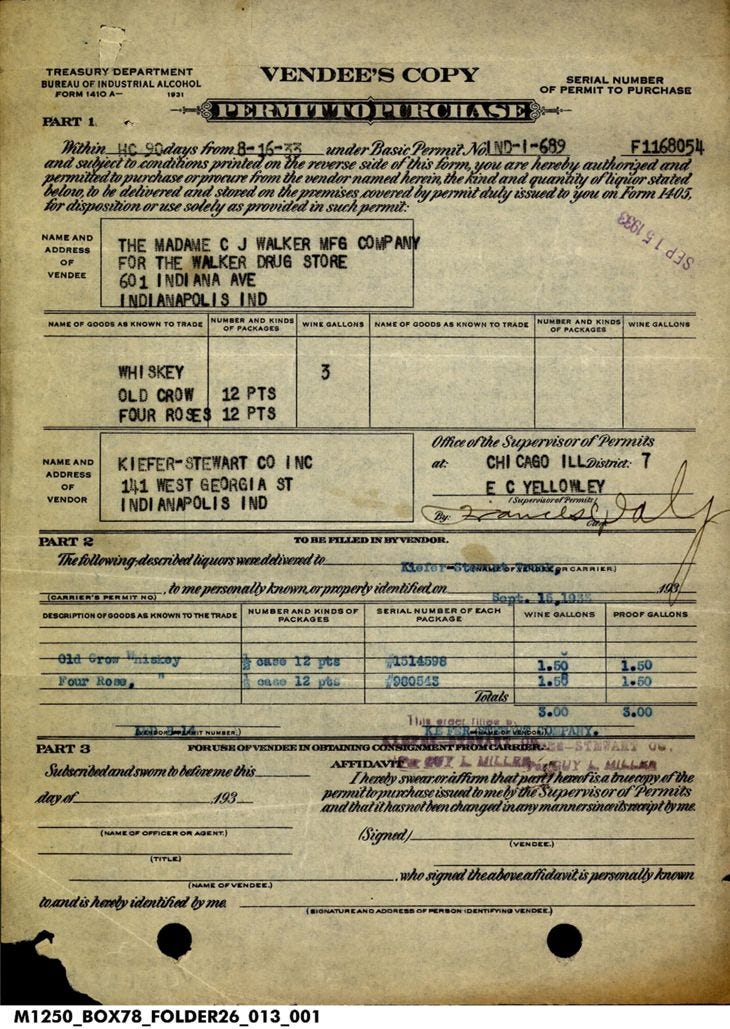 TREASURY DEPARTMENT
BUREAU OF INDUSTRIAL ALCOHOL
FORM 1410 A— 1931
VENDEE'S COPY
SERIAL NUMBER
OF PERMIT TO PURCHASE
PERMIT TO PURCHASE
PART 1.
Within HC 90 days from 8-16-33 under Basic Permit No. IND-I-689 F1168054
and subject to conditions printed on the reverse side of this form, you are hereby authorized and
permitted to purchase or procure from the vendor named herein, the kind and quantity of liquor stated
below, to be delivered and stored on the premises covered by permit duly issued to you on Form 1405,
for disposition or use solely as provided in such permit:
SEP 15 1933
NAME AND
ADDRESS
OF
VENDEE
THE MADAME C J WALKER MFG COMPANY
FOR THE WALKER DRUG STORE
601 INDIANA AVE
INDIANAPOLIS IND
NAME OF GOODS AS KNOWN TO TRADE NUMBER AND KINDS OF PACKAGES WINE GALLONS NAME OF GOODS AS KNOWN TO TRADE NUMBER AND KINDS OF PACKAGES WINE GALLONS
WHISKEY 3
OLD CROW 12 PTS
FOUR ROSES 12 PTS
NAME AND
ADDRESS
OF
VENDOR
KIEFER-STEWART CO INC
141 WEST GEORGIA ST
INDIANAPOLIS IND
Office of the Supervisor of Permits
at: CHICAGO ILL District: 7
E C YELLOWLEY
(Supervisor of Permits)
By: Frances Daly
PART 2 TO BE FILLED IN BY VENDOR.
The following described liquors were delivered to Kiefer-Stewart
(NAME OF VENDEE OR CARRIER.)
, to me personally known, or properly identified on Sept. 15,1933 ,193
(CARRIER'S PERMIT NO.)
DESCRIPTION OF GOODS AS KNOWN TO THE TRADE NUMBER AND KINDS OF PACKAGES SERIAL NUMBER OF EACH PACKAGE WINE GALLONS PROOF GALLONS
Old Crow Whiskey ½ case 12 pts #1514598 1.50 1.50
Four Rose, " ½ case 12 pts #980543 1.50 1.50
Totals 3.00 3.00
(VENDOR'S PERMIT NUMBER.)
This order filled by
KIEFER-STEWART COMPANY.
(NAME OF VENDOR)
KIEFER-STEWART CO.
Per GUY L. MILLER
PART 3 FOR USE OF VENDEE IN OBTAINING CONSIGNMENT FROM CARRIER.
AFFIDAVIT
Subscribed and sworn to before me this
day of ,193
I hereby swear or affirm that part 1 hereof is a true copy of the
permit to purchase issued to me by the Supervisor of Permits
and that it has not been changed in any manner since its receipt by me.
(NAME OF OFFICER OR AGENT.)
(Signed)
(VENDEE.)
(TITLE)
, who signed the above affidavit is personally known
(NAME OF VENDEE.)
to and is hereby identified by me.
(SIGNATURE AND ADDRESS OF PERSON IDENTIFYING VENDEE.)
M1250_BOX78_FOLDER26_013_001